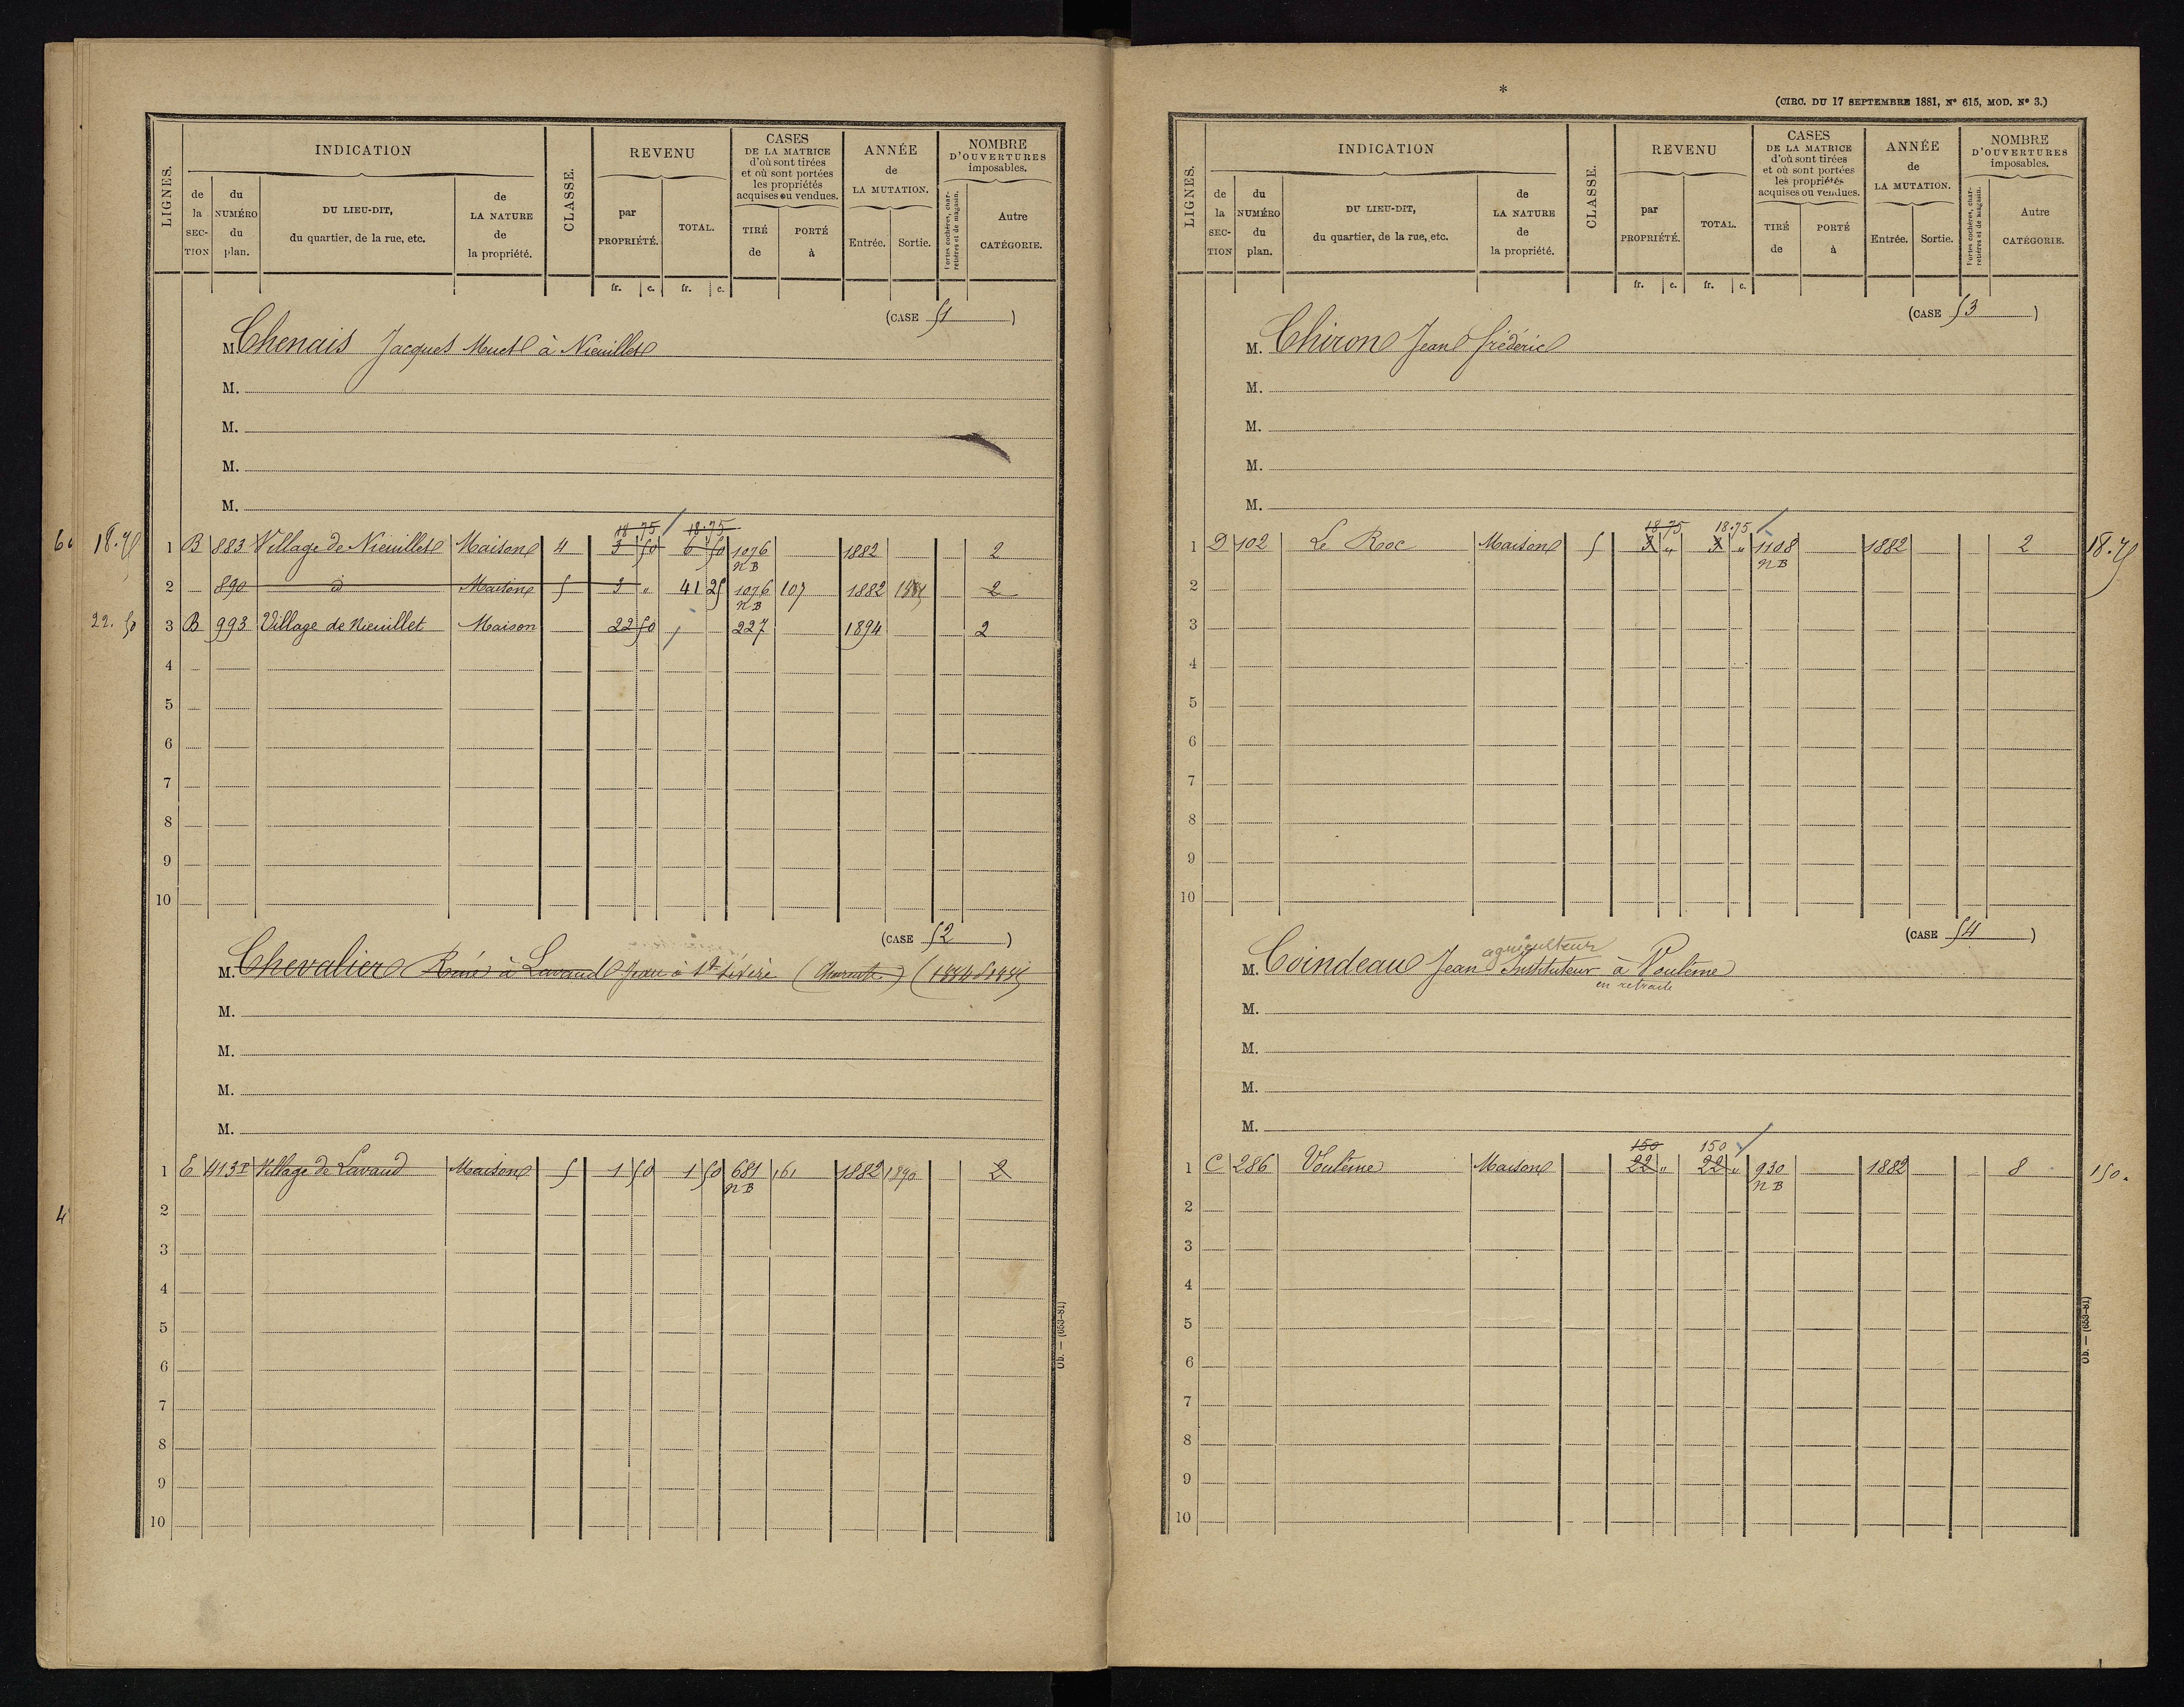 LIGNES.
INDICATION
CLASSE.
REVENU
CASES
DE LA MATRICE
d'où sont tirées
et où sont portées
les propriétés
acquises ou vendues.
ANNÉE
de
LA MUTATION.
NOMBRE
D'OUVERTURES
imposables.
de
la
SEC-
TION
du
NUMÉRO
du
plan.
DU LIEU-DIT,
du quartier, de la rue, etc.
de
LA NATURE
de
la propriété.
par
PROPRIÉTÉ.
TOTAL.
TIRÉ
de
PORTÉ
à
Entrée.
Sortie.
Portes cochères, char-
retières et de magasin.
Autre
CATÉGORIE.
fr. c. fr. c.
(CASE 51)
M. Chenais Jacques à Nieuillet
M.
M.
M.
M.
18 75 18.75
18.75 1 B 883 Village de Nieuillet Maison 4 3 50 6 50 1076 1882 2
NB
2 890 d Maison 5 3 " 41 25 1076 107 1882 2
NB
22.50 3 B 993 Village de Nieuillet Maison 22 50 227 1894 2
4
5
6
7
8
9
10
(CASE 52)
M. Chevalier René à Lavaud (Charente)
M.
M.
M.
M.
1 E 413P Village de Lavaud Maison 5 1 50 1 50 681 161 1882 1890 2
NB
2
3
4
5
6
7
8
9
10
Ob. — (653-81)
*
(CIRC. DU 17 SEPTEMBRE 1881, N° 615, MOD. N° 3.)
LIGNES.
INDICATION
CLASSE.
REVENU
CASES
DE LA MATRICE
d'où sont tirées
et où sont portées
les propriétés
acquises ou vendues.
ANNÉE
de
LA MUTATION.
NOMBRE
D'OUVERTURES
imposables.
de
la
SEC-
TION
du
NUMÉRO
du
plan.
DU LIEU-DIT,
du quartier, de la rue, etc.
de
LA NATURE
de
la propriété.
par
PROPRIÉTÉ.
TOTAL.
TIRÉ
de
PORTÉ
à
Entrée.
Sortie.
Portes cochères, char-
retières et de magasin.
Autre
CATÉGORIE.
fr. c. fr. c.
(CASE 53)
M. Chiron Jean frédéric
M.
M.
M.
M.
18.75 18.75
1 D 102 Le Roc Maison 5 3 " 3 " 1108 1882 2 18.75
NB
2
3
4
5
6
7
8
9
10
(CASE 54)
agriculteur
M. Coindeau Jean Instituteur à Voulême
en retraite
M.
M.
M.
M.
150 150
1 C 286 Voulême Maison 22 " 22 " 930 1882 8 150.
NB
2
3
4
5
6
7
8
9
10
Ob. — (653-81)